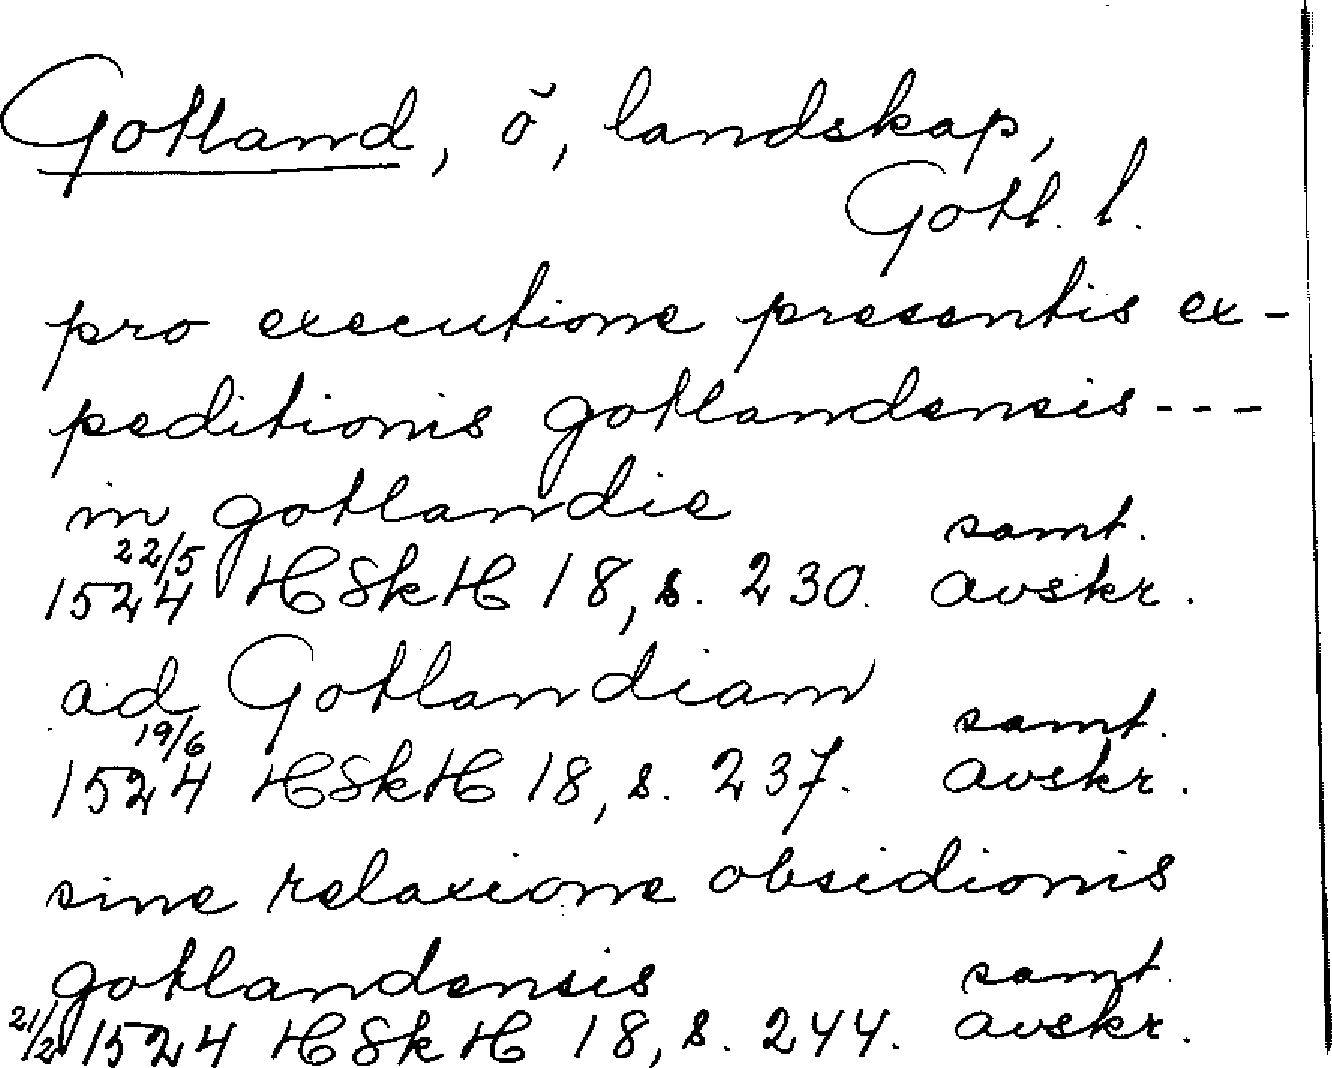 Gotland, ö, landskap,
Gotl. l.
pro executione presentis ex-
peditionis gotlandensis ---
in gotlandie samt.
22/5
1524 HSkH 18, s. 230. avskr.
ad Gotlandiam samt.
19/6
1524 HSkH 18, s. 237. avskr.
sine relaxione obsidionis
gotlandensis samt.
21/2 1524 HSkH 18, s. 244. avskr.